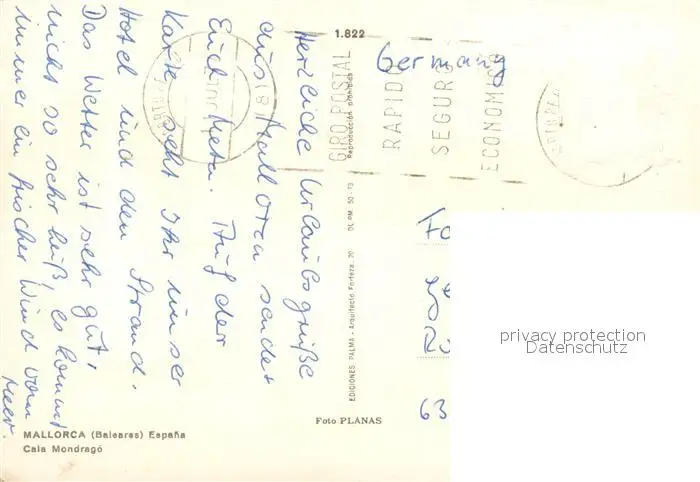 Herzliche Urlaubsgrüße
aus Mallorca sendet
Euch Peter. Auf der
Karte seht Ihr unser
Hotel und den Strand.
Das Wetter ist sehr gut,
nicht so sehr heiß, es kommt
immer ein frischer Wind vom
Meer.
MALLORCA (Baleares) España
Cala Mondragó
1.822
Reproducción prohibida
DL.PM. 50-73
EDICIONES PALMA - Arquitecto Forteza, 20
Foto PLANAS
GIRO POSTAL
RAPIDO
SEGURO
ECONOMICO
Germany
Fo
63
privacy protection
Datenschutz